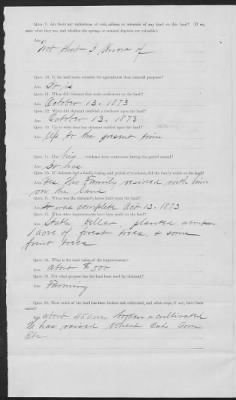 Ques. 9. Are there any indications of coal, salines or minerals of any kind on this land? (If any,
state what they are, and whether the springs or mineral deposits are valuable.)
Ans. Not that I know of
Ques. 10. Is the land more valuable for agricultural than mineral purposes?
Ans. It is
Ques. 11. When did claimant first make settlement on the land?
Ans. October 13. 1873
Ques. 12. When did claimant establish a residence upon the land?
Ans. October 13. 1873
Ques. 13. Up to what time has claimant resided upon the land?
Ans. Up to the present time
Ques. 14. Has his residence been continuous during the period named?
Ans. It has
Ques. 15. If claimant had a family during said period of residence, did the family reside on the land?
Ans. Yes His Family resided with him
on the land
Ques. 16. When was the claimant's house built upon the land?
Ans. It was completed Oct 13. 1873
Ques. 17. What other improvements have been made on the land?
Ans. Stable planted
1 acre of forest trees & some
fruit trees
Ques. 18. What is the total value of the improvements?
Ans. About $500
Ques. 19. For what purpose has the land been used by claimant?
Ans. Farming
Ques. 20. How much of the land has been broken and cultivated, and what crops, if any, have been
raised?
About 45 acres broken & cultivated
He has raised Wheat Oats Corn
Etc